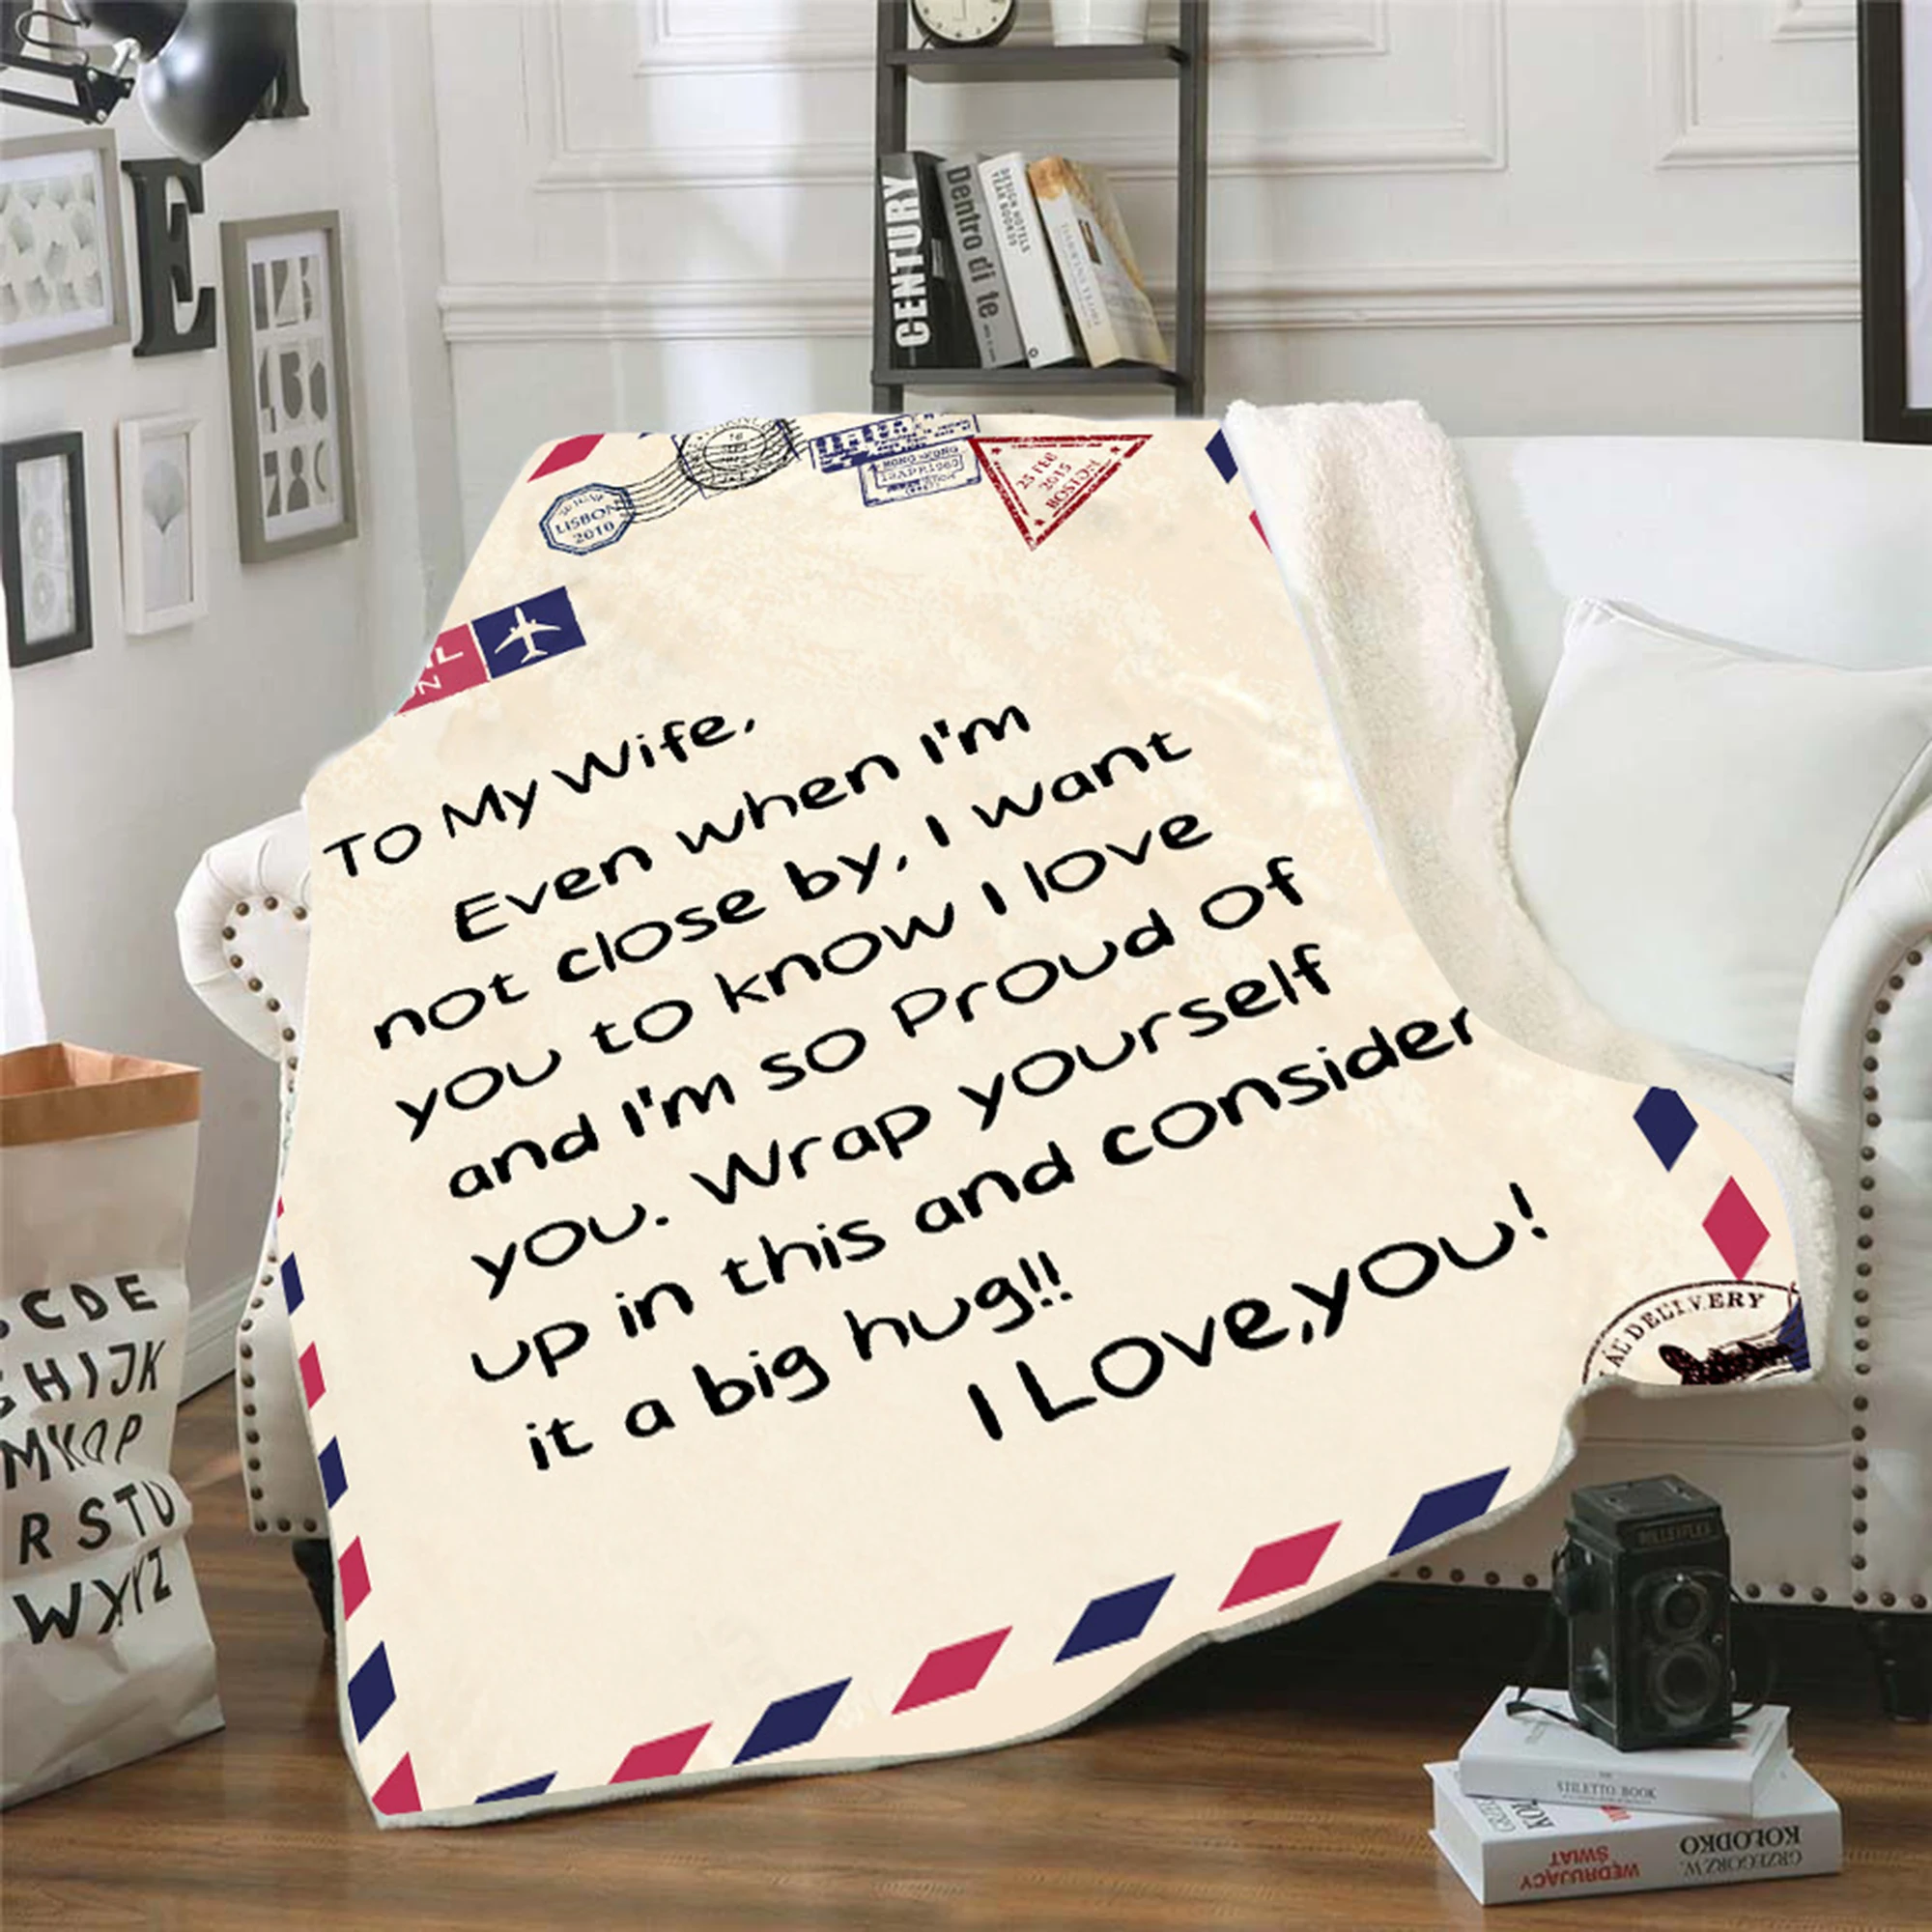 E
CENTURY
Dentro di te
DESIGN HOTELS
YEAR BOOK
LISBON
2010
HONG KONG
25 FEB
2015
BOSTON
To My Wife,
Even when I'm
not close by, I want
you to know I love
and I'm so Proud Of
you. Wrap yourself
up in this and consider
it a big hug!!
I Love,you!
DELIVERY
CDE
GHIJK
R STU
WXYZ
ROLLEIFLEX
STILETTO BOOK
GRZEGORZ W.
KOŁODKO
WĘDRUJĄCY
ŚWIAT